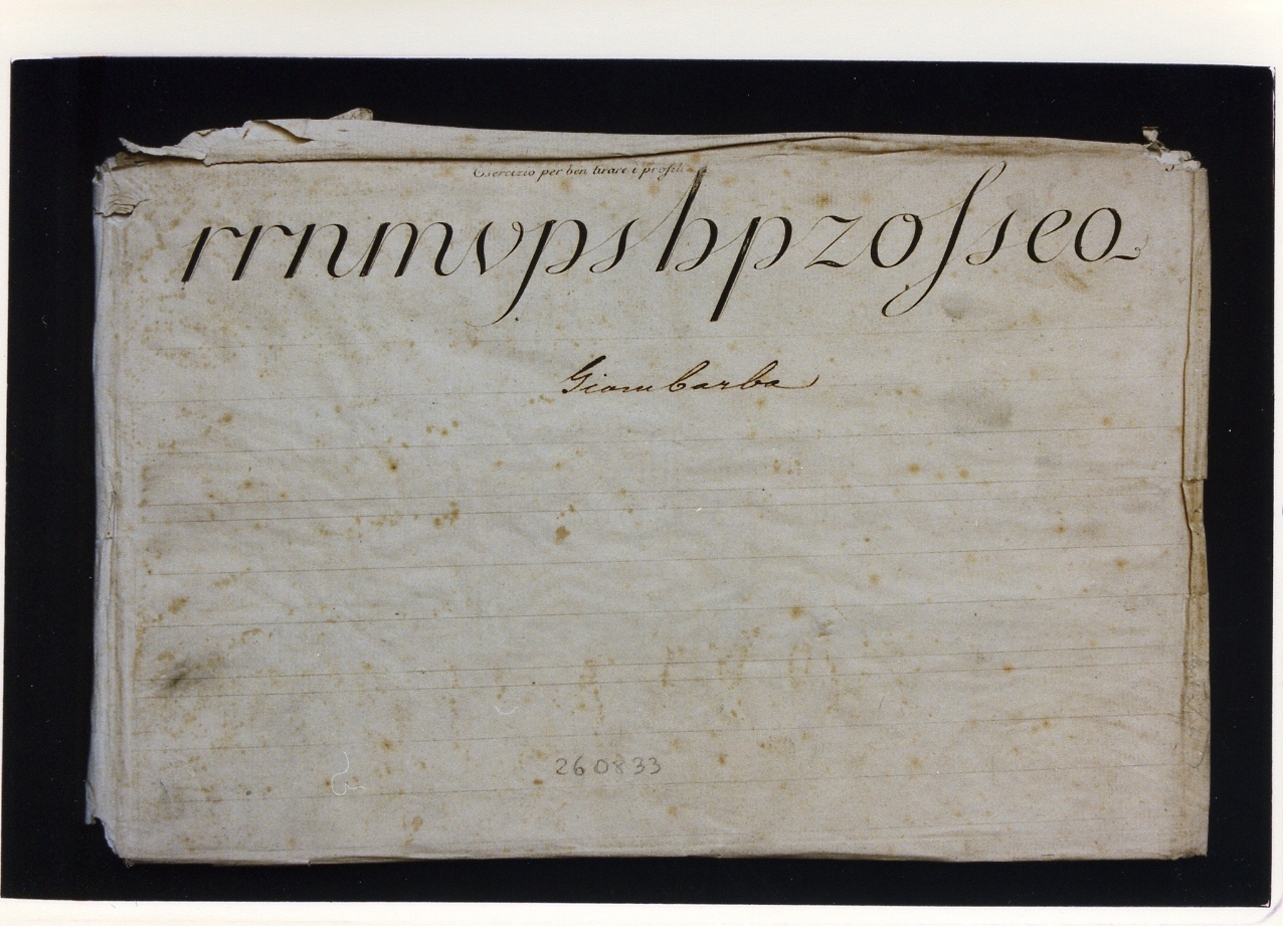 Esercizio per ben tirare i profili
rrnmvpshpzofseo
Giambarba
260833